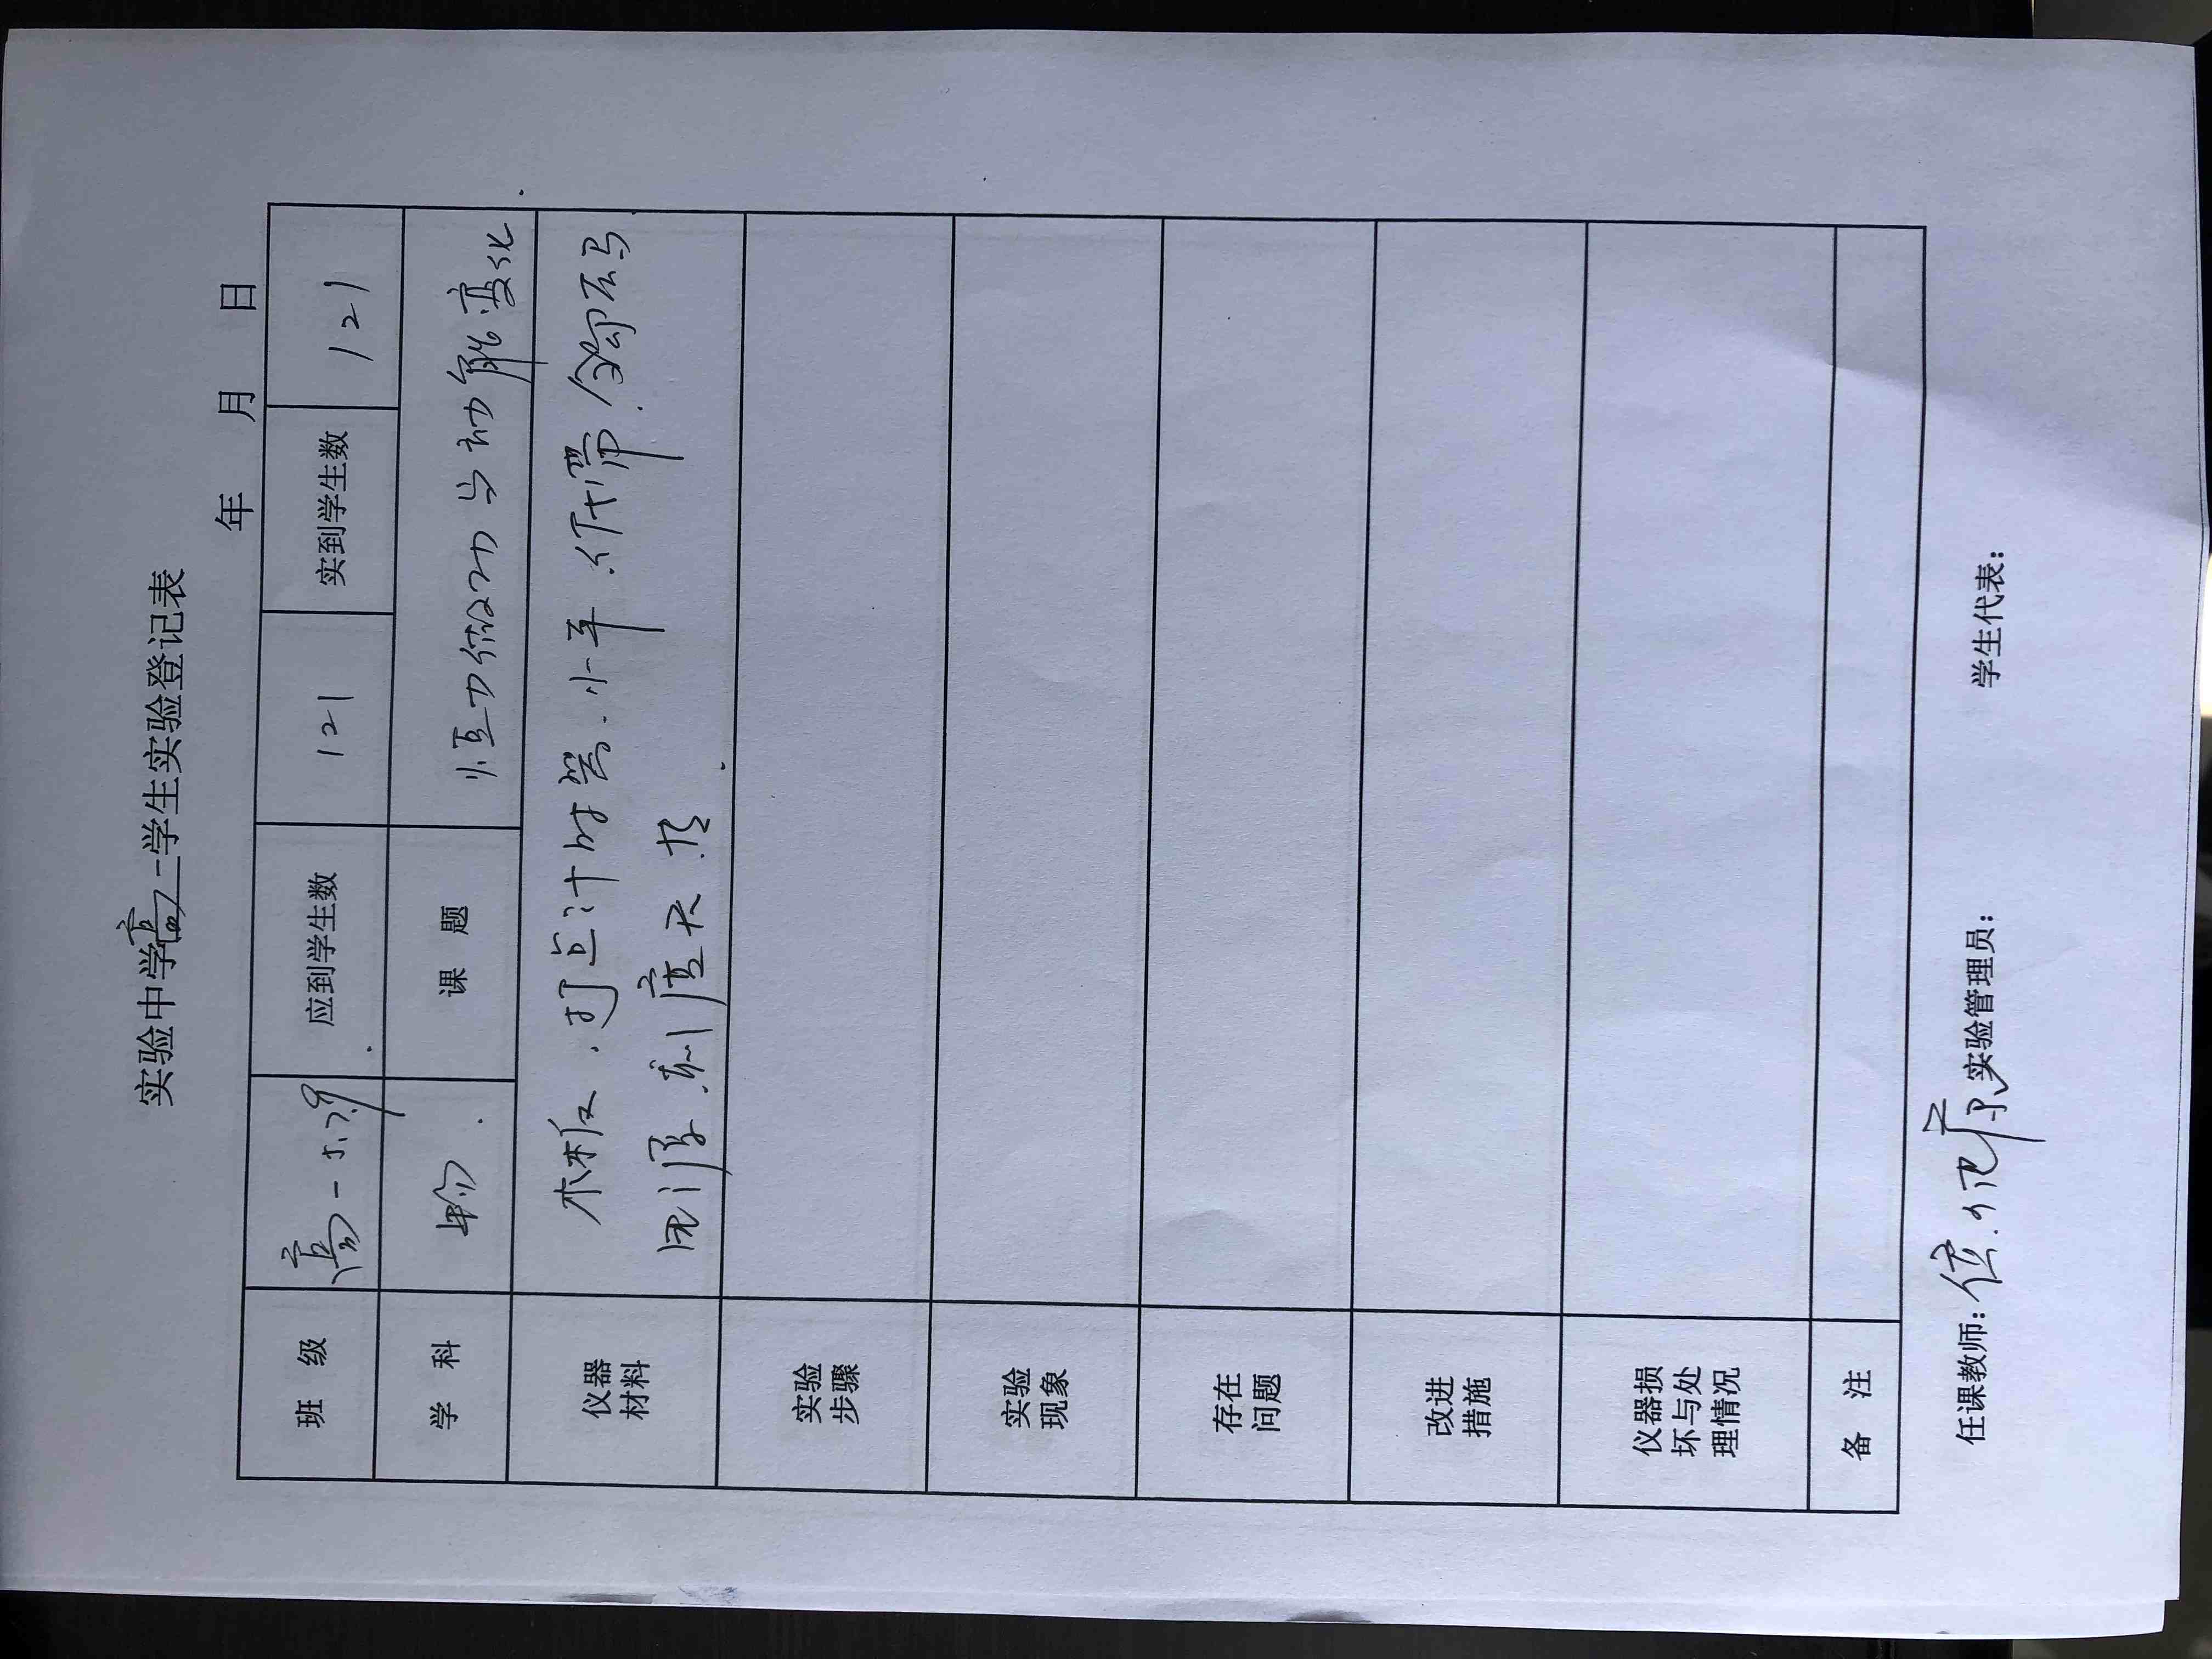 实验中学高一学生实验登记表
年 月 日
班 级 高一 应到学生数 121 实到学生数 121
学 科 物 课 题 恒力做功与动能变化
仪器材料 木板.打点计时器.小车.纸带.钩码
电源.刻度尺.
实验步骤
实验现象
存在问题
改进措施
仪器损坏与处理情况
备 注
任课教师: 实验管理员: 学生代表: